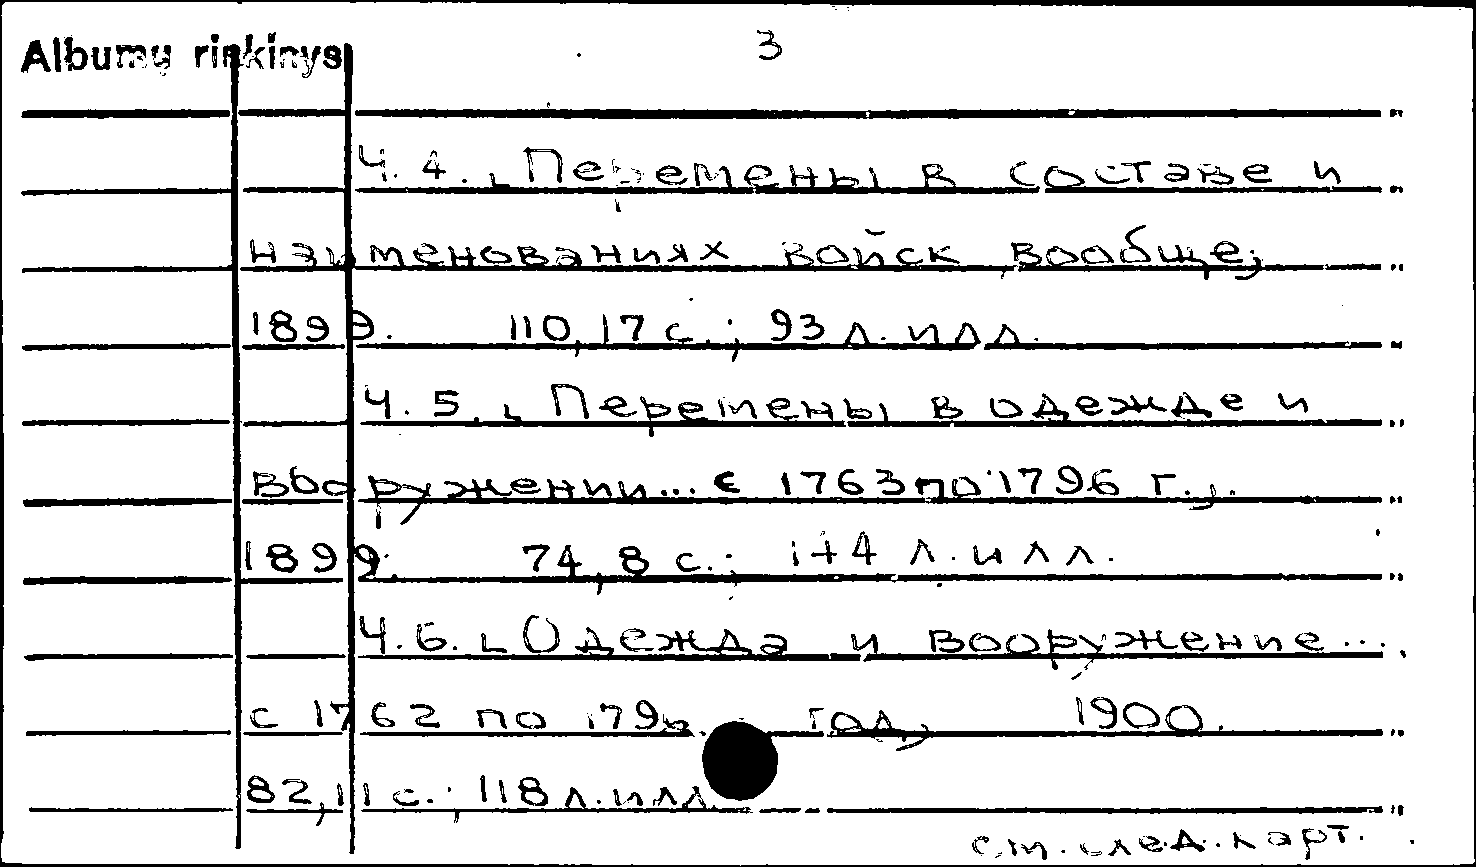 Albumų rinkinys
3
Ч. 4. Перемены в составе и
наименованиях войск вообще;
1899. 110,17 с.; 93 л. илл.
Ч. 5. Перемены в одежде и
вооружении... с 1763 по 1796 г.,
1899. 74,8 с.; 144 л. илл.
Ч. 6. Одежда и вооружение...
с 1762 по 1796 год, 1900.
82,11 с.; 118 л. илл.
см. след. карт.